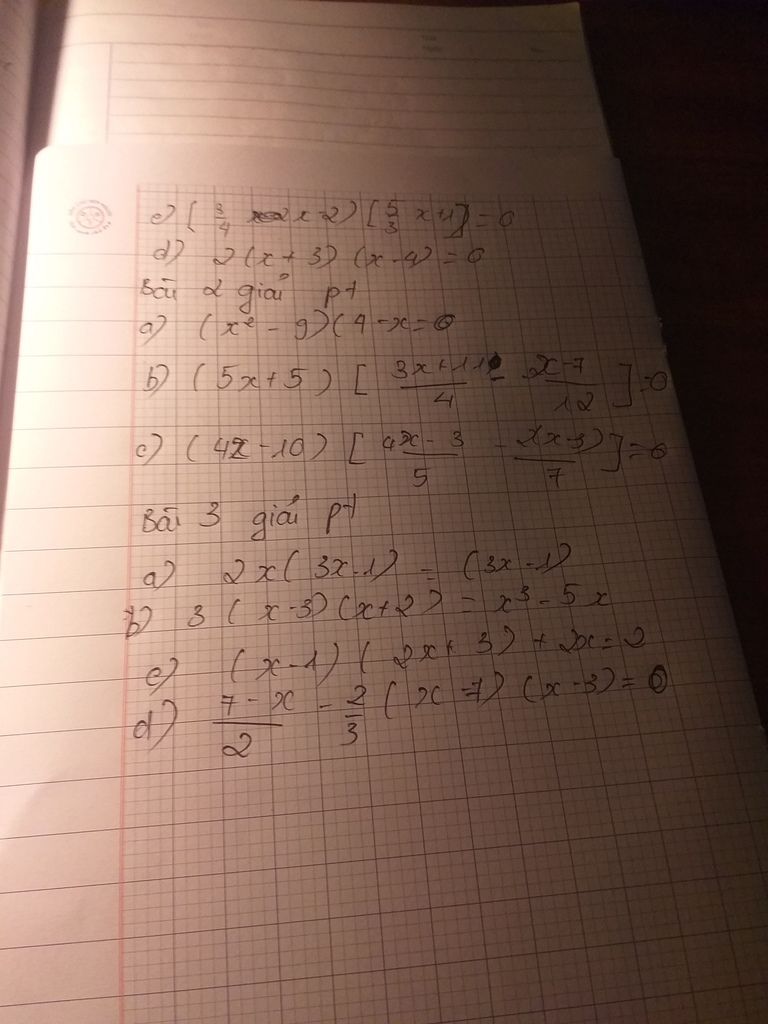 c) [ 3/4 x - 2 ) [ 5/3 x + 1 ] = 0
d) 2 (x + 3) (x - 4) = 0
Bài 2 giải pt
a) (x² - 9) (4 - x = 0
b) (5x + 5) [ (3x + 1)/4 - (2x - 7)/12 ] = 0
c) (4x - 10) [ (4x - 3)/5 - 2(x - 3)/7 ] = 0
Bài 3 giải pt
a) 2x ( 3x - 1) = (3x - 1)
b) 3 ( x - 3) (x + 2) = x³ - 5x
c) (x - 1) ( 2x + 3) + 2x = 2
d) (7 - x)/2 - 2/3 ( x - 7) (x - 3) = 0